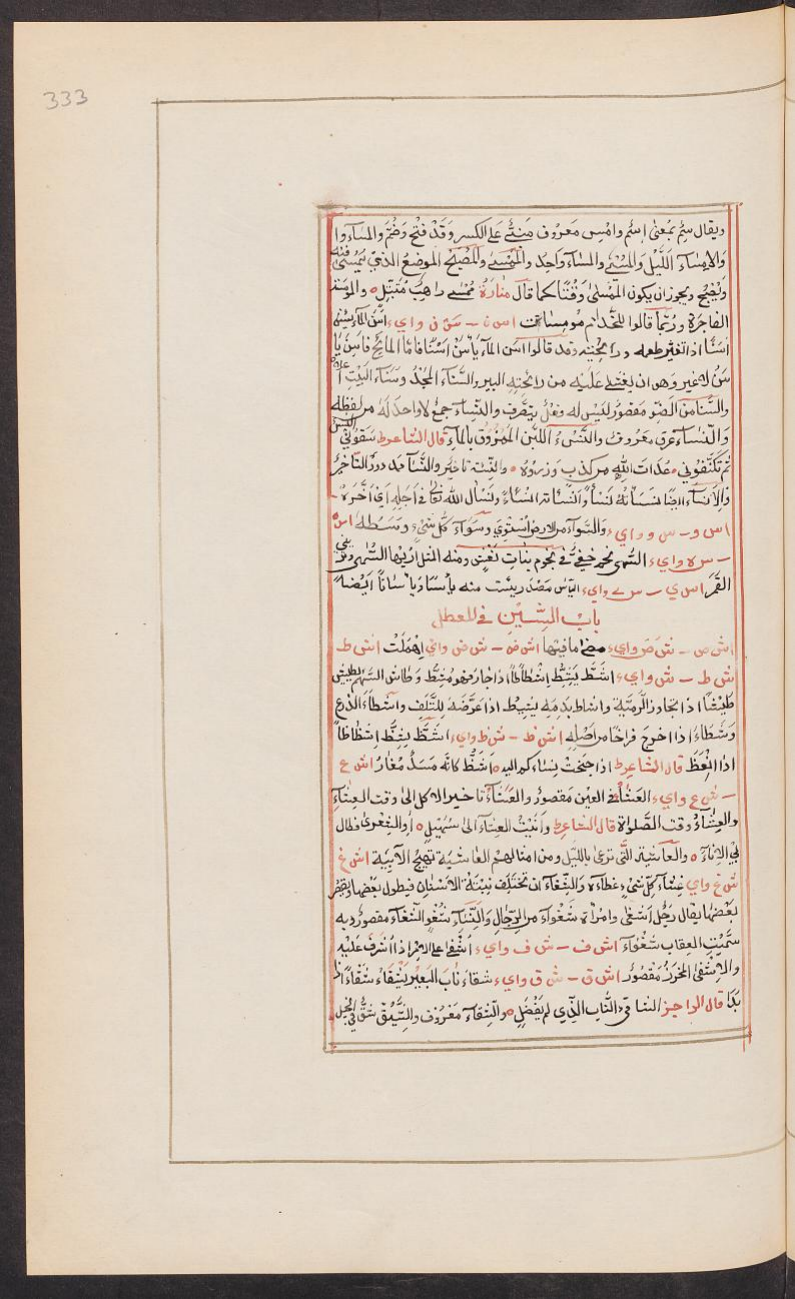 333
ويقال سِمٌ بمعنى اِسْم وامْسِ مَعروف مَبنيّ على الكسر وَقَدْ فتح وضُمّ والمساء وا
وَالامسَاءُ اللَّيْل وَالمُسْيُ والمساء وَاحِد والمُمْسى والمُصْبَح الموضعُ الذي يُمْسى فيه
ويُصْبَح ويجوز ان يكون المُمْسى وقْتًا كما قال منارةُ مُمْسى راهِبٍ مُتَبَتِّلِ ٥ والمومسَة
الفاجرَة ورُبّما قالوا للخَدم مُومِسَات اس ن – س ن واي، اسَنَ الماء يسُن
اسَنًا اذا تغيّر طعمه ورائحته وقد قالوا اسَن الماء يَاسُن اسْنًا فامّا المائح فاسِنَ يَا
سَنُ لا غير وهو ان يغشى عليه من رائحته البير والسَّنَاء المَجْدُ وسَنَاء البَيْت اعلاه
والسَّنا من الضَّوء مَقصُور لَيس له فِعْل يتصَرف والنِّسَاء جمعٌ لا واحد له من لفظه
وَالنَّسَا عِرق مَعروف والنَّسْء اللبَن الممزُوق بالمآءِ قال الشاعر ط سَقوني النَّسْءَ
ثم تكنّفوني ٭ عُدَاتَ اللهِ من كذب وَزُورٍ ٥
وَالانسَاء ايضًا نسَأتهُ نَسْأً والنَّسْأة
اس و – س و واي، وَالسَّواء من الارض استوى وسَوَاءَ كلّ شيء وسَطه اس ه
– س ه واي، السُّهى نجم خفيّ في نجوم بنات نَعْش ومنه المثل اُريها السُّهى وتُريني
القَمَر اس ي – س ي واي، اليأس مَصْدَر يئست منه يأسًا ويَاسًا ايضًا
بابُ الشّينِ في المعطل
اش ص – ش ص واي، مضى ما فيها اش ض – ش ض واي اُهْمِلَتْ اش ط
ش ط – ش واي، اشَطّ يَشِطّ اِشْطاطًا اذا جار فهو مُشِطّ وطاش السّهْم يطيش
طَيْشًا اذا تجاوز الرّميّة واشاط بدمه يشيط اذا عَرَّضَهُ للتّلَف واشطَأ الذرع
وَشَطَأَ اذا اخرج فراخًا من اصْله اش ظ – ش ظ واي، اشَظّ يشِظّ اِشظاظًا
اذا انْعَظَ قال الشاعر ط اذا جنحت نساءكم اليه ٥ اَشَظّ كانّه مَسَدٌ مُغارُ اش ع
– ش ع واي، العَشَا في العين مَقصورُ والعَشَاءُ تاخير الاكل الى وقت العِشَاءِ
والعِشَاءُ وقت الصَّلوة قال الشاعر ط وآنيتُ العِشَاءَ الى سُهَيْلٍ ٥ او الشِعْرى فطال
لي الاناءُ ٥ والعاشية التى ترعى بالليّل ومن امثالهم العاشيَة تهيج الآبِيَة اش غ
ش غ واي غِشَاءُ كلّ شيء غطاءه والشَّغاء ان تختَلِف نِبْتَةُ الاسْنان فيطول بَعْضها ويقصُر
بَعْضُها يقال رَجُل اَشْغى وامراة شَغْواء من الرِّجال والنِّسَاءِ شُغْو الشّغا مقصورٌ وبه
سمّيت العِقاب شغواء اش ف – ش ف واي، اَشْفى على الامر اذا اَشْرف عَليْه
والاشفى المِخرَزُ مَقصُورٌ اش ق – ش ق واي، شقاء نابُ البَعِير يشقاءُ شَقاءً اذا
بَدَا قال الراجز الشاقيء النّابِ الّذي لم يَفْضَلِ ٥ والشِقاء مَعْرُوف والشِّيقُ شَقّ في الجبل